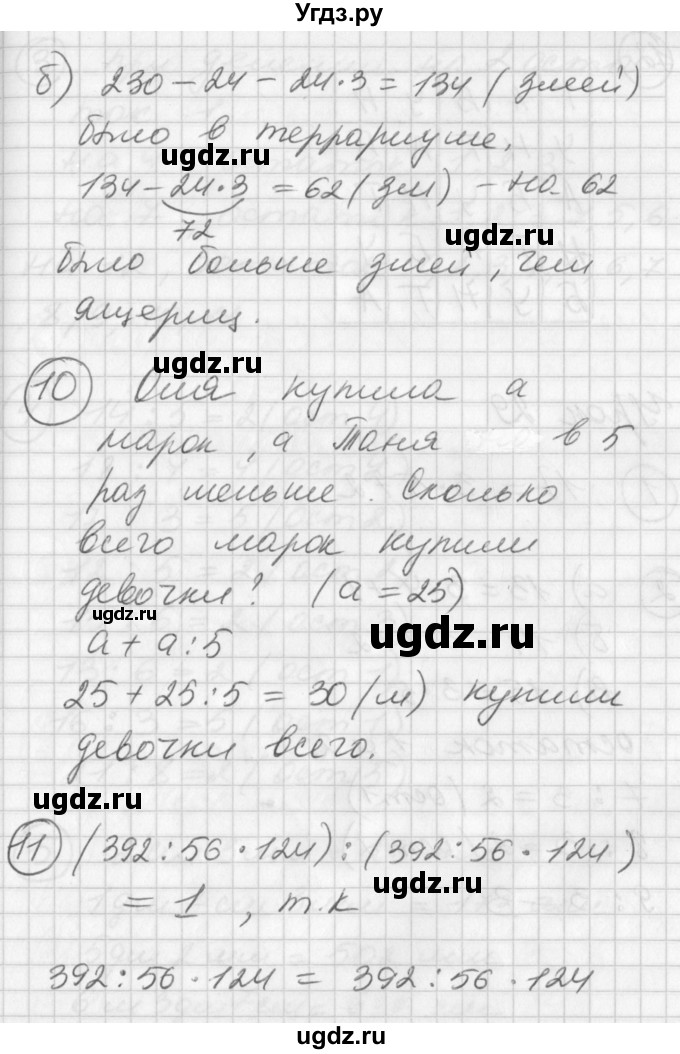 Угдз.ру
б) 230 - 24 - 24·3 = 134 (змей)
было в террариуме.
ugdz.ru
134 - 24·3 = 62 (зм) - на 62
72
ugdz.ru
было больше змей, чем
ящериц.
ugdz.ru
10 Оля купила a
марок, а Таня в 5
раз меньше. Сколько
всего марок купили
девочки? (a = 25)
ugdz.ru
ugdz.ru
a + a : 5
25 + 25 : 5 = 30 (м) купили
девочки всего.
ugdz.ru
11 (392 : 56 · 124) : (392 : 56 · 124)
ugdz.ru
= 1, т.к
392 : 56 · 124 = 392 : 56 · 124
ugdz.ru